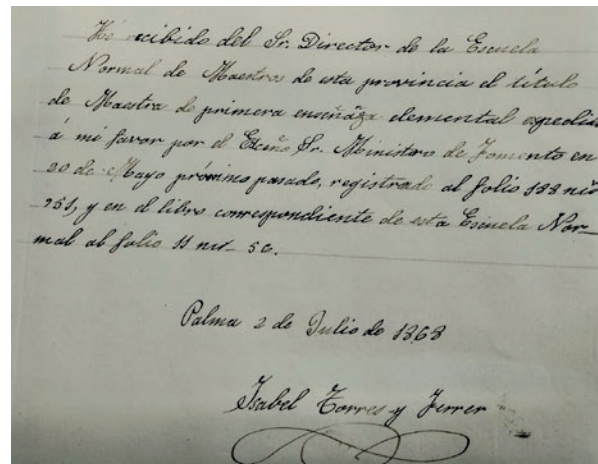 He recibido del Sr. Director de la Escuela
Normal de Maestros de esta provincia el título
de Maestra de primera enseñãza elemental expedido
á mi favor por el Ecmõ Sr. Ministro de Fomento en
20 de Mayo próximo pasado, registrado al folio 188 nº
251, y en el libro correspondiente de esta Escuela Nor_
mal al folio 11 nº 56.
Palma 2 de Julio de 1868
Isabel Torres y Ferrer